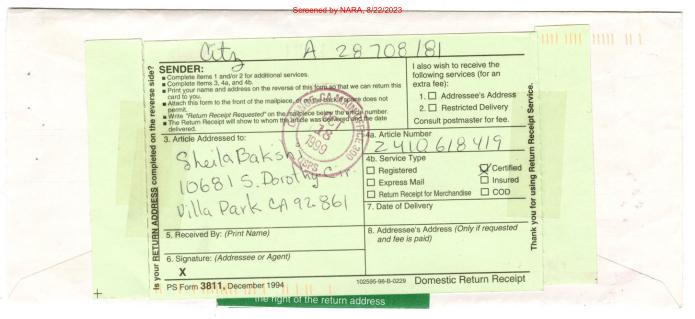 Screened by NARA, 8/22/2023
City A 28 708 181
SENDER:
■ Complete items 1 and/or 2 for additional services.
■ Complete items 3, 4a, and 4b.
■ Print your name and address on the reverse of this form so that we can return this card to you.
■ Attach this form to the front of the mailpiece, or on the back if space does not permit.
■ Write "Return Receipt Requested" on the mailpiece below the article number.
■ The Return Receipt will show to whom the article was delivered and the date delivered.
I also wish to receive the
following services (for an
extra fee):
1. ☐ Addressee's Address
2. ☐ Restricted Delivery
Consult postmaster for fee.
3. Article Addressed to:
Sheila Bakshi
10681 S. Dorothy Cir
Villa Park CA 92861
4a. Article Number
Z410618419
4b. Service Type
☐ Registered ☑ Certified
☐ Express Mail ☐ Insured
☐ Return Receipt for Merchandise ☐ COD
7. Date of Delivery
5. Received By: (Print Name)
8. Addressee's Address (Only if requested
and fee is paid)
6. Signature: (Addressee or Agent)
X
PS Form 3811, December 1994
102595-98-B-0229 Domestic Return Receipt
Is your RETURN ADDRESS completed on the reverse side?
Thank you for using Return Receipt Service.
OCT
18
1999
USPS
the right of the return address